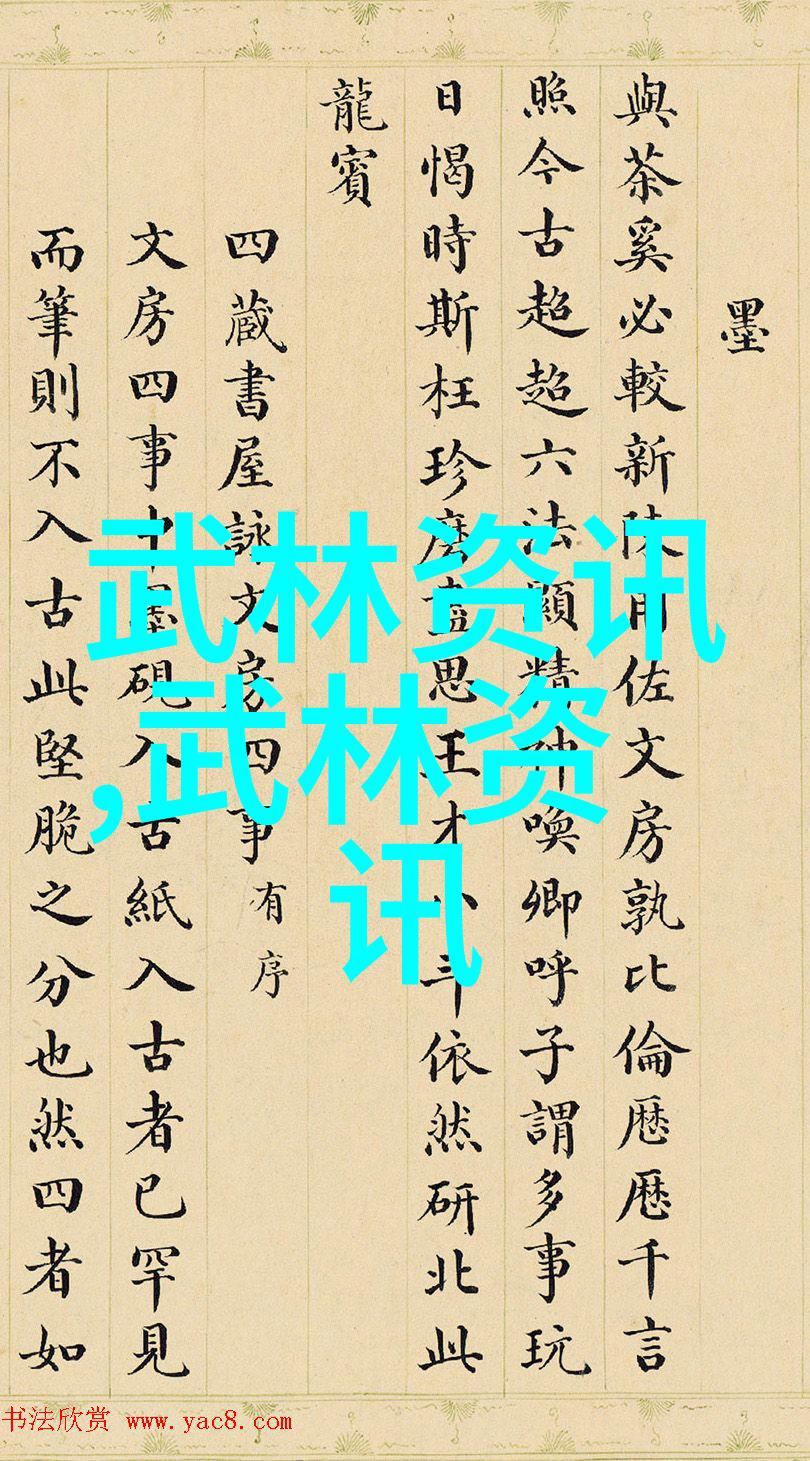 墨
與茶奚必較新陳用佐文房孰比倫歷歷千言
照今古超超六法顯精神喚卿呼子謂多事玩
日愒時斯枉珍磨盡思王才八斗依然研北此
龍賓
四蔵書屋詠文房四事有序
文房四事中墨硯入古紙入古者已罕見
而筆則不入古此堅脆之分也然四者如
武林资讯
,武林资
讯
书法欣赏 www.yac8.com